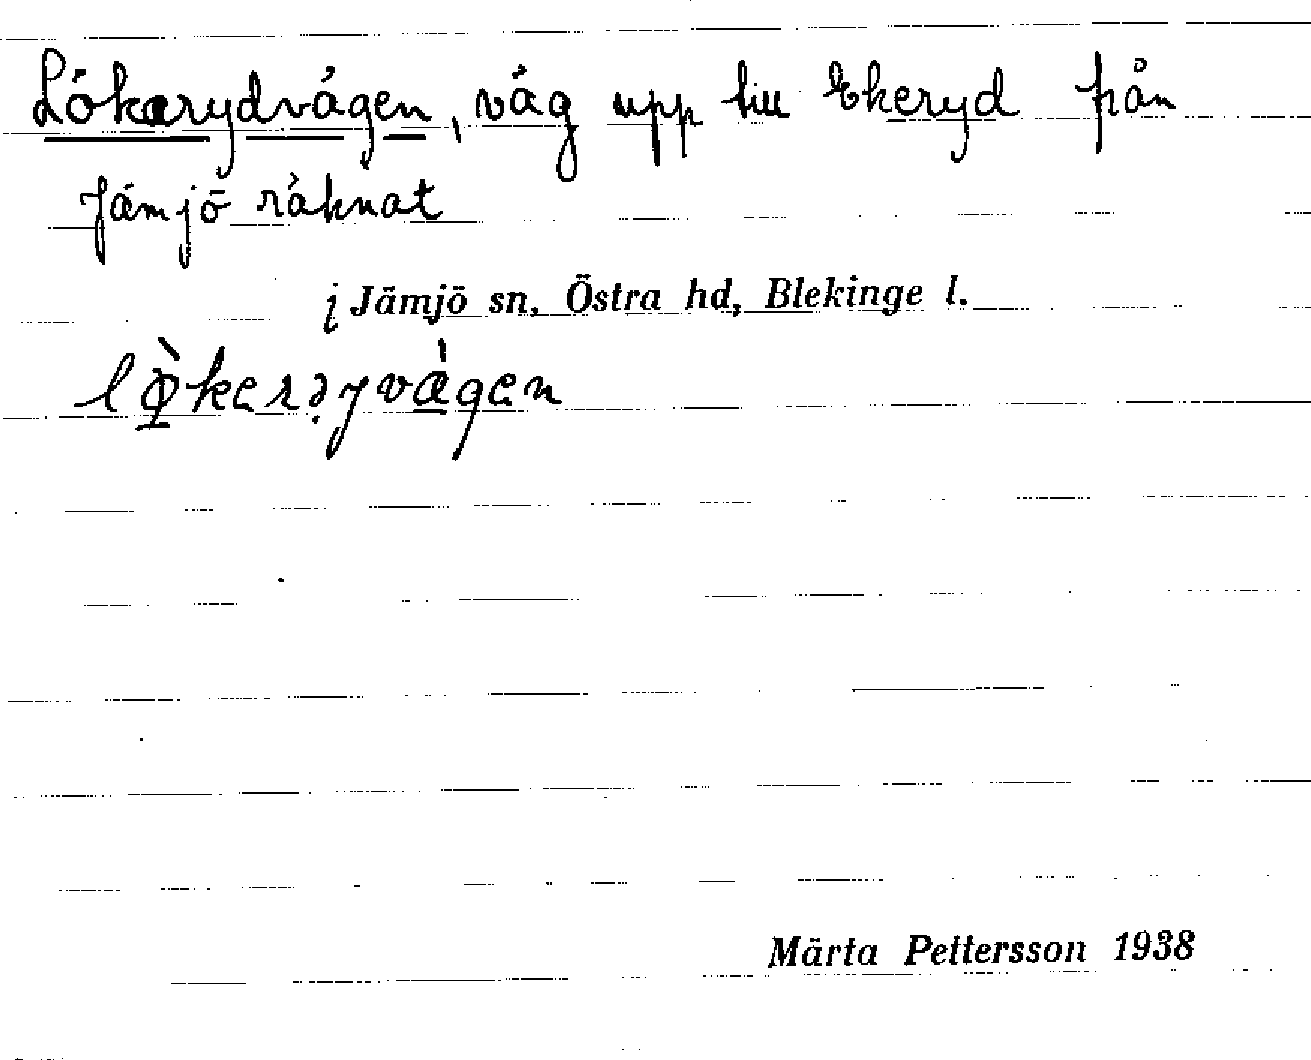 Lökerydvägen, väg upp till Ekeryd från
Jämjö räknat
i Jämjö sn, Östra hd, Blekinge l.
lø̀kerəyvä̀gen
Märta Pettersson 1938